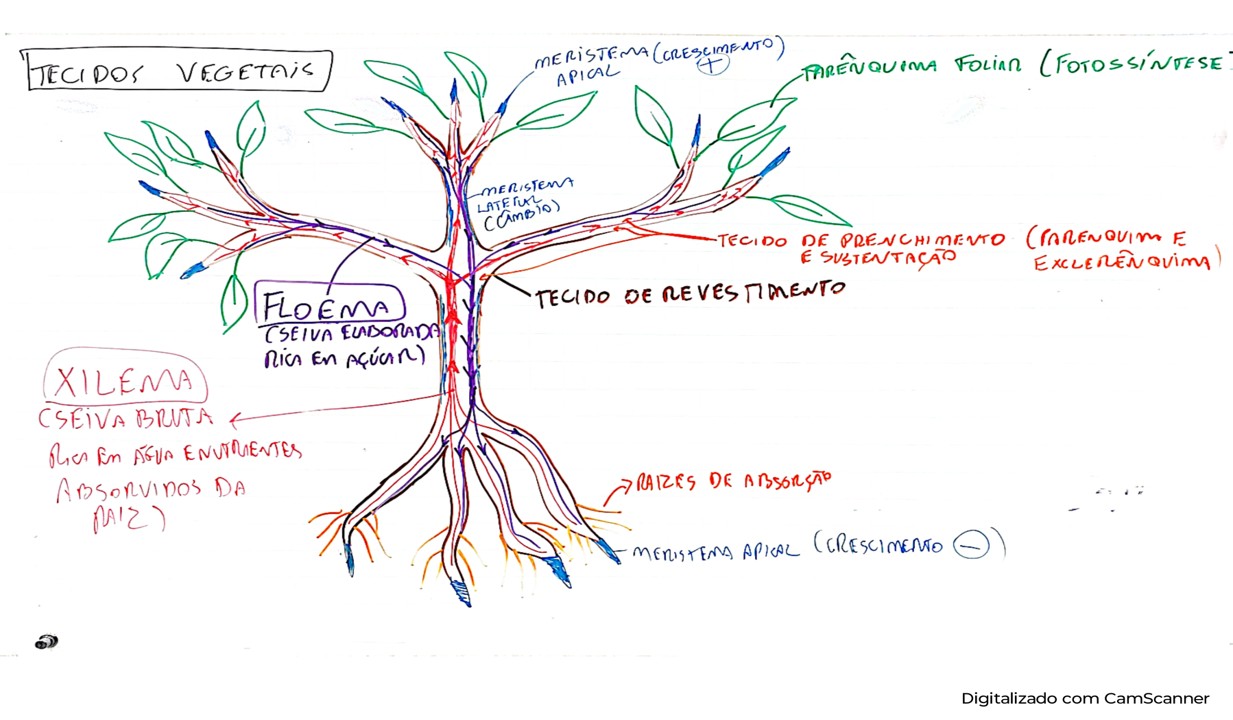 TECIDOS VEGETAIS
MERISTEMA (CRESCIMENTO)
APICAL +
PARÊNQUIMA FOLIAR (FOTOSSÍNTESE
MERISTEMA
LATERAL
(CÂMBIO)
TECIDO DE PRENCHIMENTO (PARENQUIM E
E SUSTENTAÇÃO EXCLERÊNQUIMA)
TECIDO DE REVESTIMENTO
FLOEMA
(SEIVA ELABORADA
RICA EM AÇÚCAR)
XILEMA
(SEIVA BRUTA
RICA EM ÁGUA E NUTRIENTES
ABSORVIDOS DA
RAIZ)
RAIZES DE ABSORÇÃO
MERISTEMA APICAL (CRESCIMENTO -)
Digitalizado com CamScanner